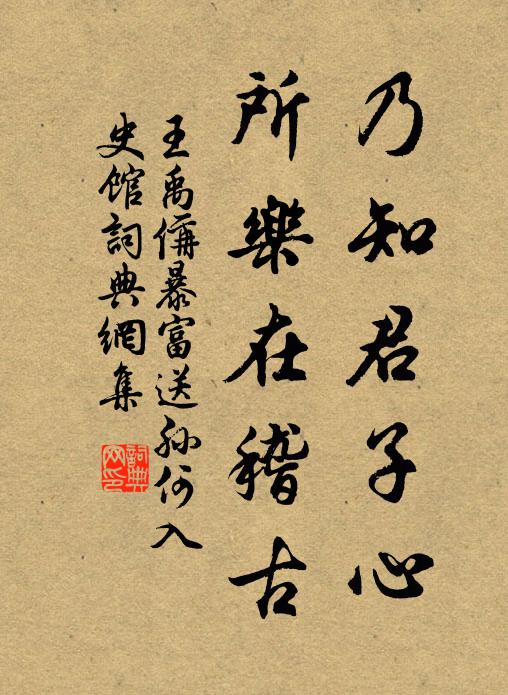 乃知君子心
所樂在稽古
王禹偁暴富送孫何入
史館詞典網集
詞典網印